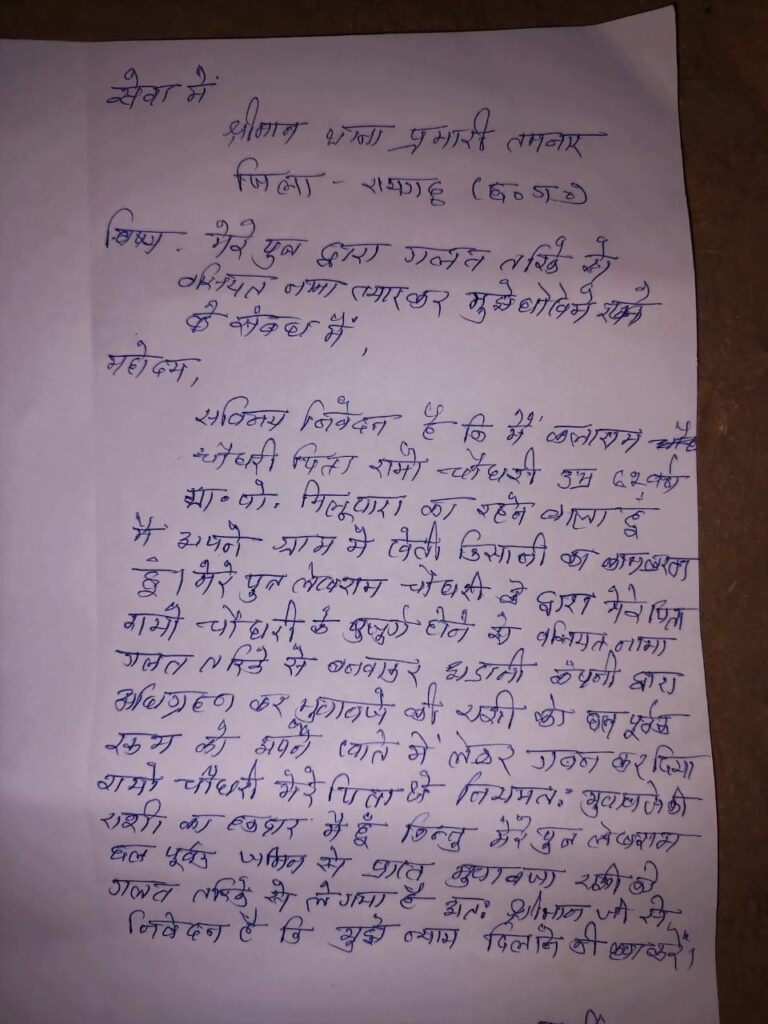 सेवा में
श्रीमान थाना प्रभारी तमनार
जिला - रायगढ़ (छ०ग०)
विषय . मेरे पुत्र द्वारा गलत तरिके से
वसियत नामा तयार कर मुझे धोखे मे रखने
के संबध में,
महोदय,
सविनय निवेदन है कि मैं कलाराम
चौधरी पिता रामो चौधरी उम्र ६२ वर्ष
ग्रा.पो. मिलूपारा का रहने वाला हूँ
मैं अपने ग्राम मे खेती किसानी का काम करता
हूँ। मेरे पुत्र लेखराम चौधरी के द्वारा मेरे पिता
रामो चौधरी के बुजुर्ग होने से वसियत नामा
गलत तरिके से बनवाकर अडानी कंपनी द्वारा
अधिग्रहन कर मुआवजे की राशी को छल पूर्वक
रकम को अपने खाते में लेकर गबन कर दिया
रामो चौधरी मेरे पिता थे नियमतः मुवावजे की
राशी का हकदार मैं हूँ किन्तु मेरे पुत्र लेखराम
छल पूर्वक जमिन से प्राप्त मुवावजा राशी को
गलत तरिके से ले गया है अतः श्रीमान जी से
निवेदन है कि मुझे न्याय दिलाने की कृपा करें।